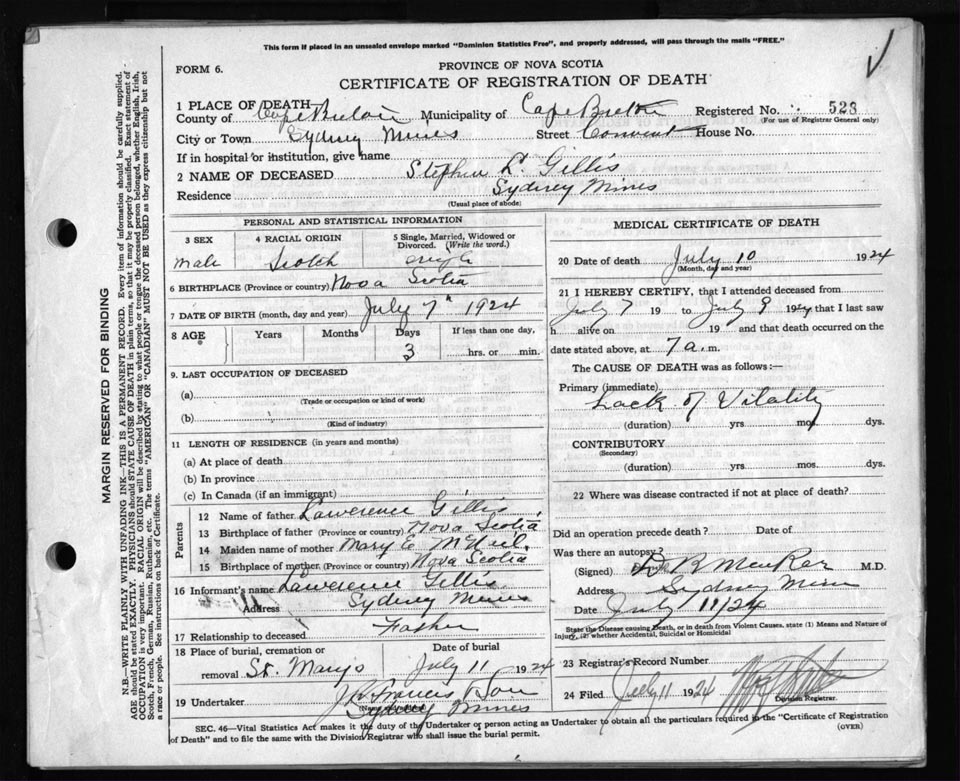 This form if placed in an unsealed envelope marked "Dominion Statistics Free", and properly addressed, will pass through the mails "FREE."
FORM 6.
PROVINCE OF NOVA SCOTIA
CERTIFICATE OF REGISTRATION OF DEATH
1 PLACE OF DEATH
County of Cape Breton Municipality of Cape Breton Registered No. 523
(For use of Registrar General only)
City or Town Sydney Mines Street Convent House No.
If in hospital or institution, give name
2 NAME OF DECEASED Stephen L. Gillis
Residence Sydney Mines
(Usual place of abode)
PERSONAL AND STATISTICAL INFORMATION
3 SEX 4 RACIAL ORIGIN 5 Single, Married, Widowed or Divorced. (Write the word.)
Male Scotch single
6 BIRTHPLACE (Province or country) Nova Scotia
7 DATE OF BIRTH (month, day and year) July 7th 1924
8 AGE Years Months Days If less than one day,
3 hrs. or min.
9. LAST OCCUPATION OF DECEASED
(a)
(Trade or occupation or kind of work)
(b)
(Kind of industry)
11 LENGTH OF RESIDENCE (in years and months)
(a) At place of death
(b) In province
(c) In Canada (if an immigrant)
Parents
12 Name of father Lawerence Gillis
13 Birthplace of father (Province or country) Nova Scotia
14 Maiden name of mother Mary E. McNeil
15 Birthplace of mother (Province or country) Nova Scotia
16 Informant's name Lawerence Gillis
Address Sydney Mines
17 Relationship to deceased Father
18 Place of burial, cremation or removal St. Marys
Date of burial
July 11 1924
19 Undertaker J. R. Francis & Son
Sydney Mines
MEDICAL CERTIFICATE OF DEATH
20 Date of death July 10 1924
(Month, day and year)
21 I HEREBY CERTIFY, that I attended deceased from
July 7 19 to July 9 1924 that I last saw
h alive on 19 and that death occurred on
date stated above, at 7 a. m.
The CAUSE OF DEATH was as follows:—
Primary (immediate)
Lack of Vitality
(duration) yrs. mos. dys.
CONTRIBUTORY
(Secondary)
(duration) yrs. mos. dys.
22 Where was disease contracted if not at place of death?
Did an operation precede death? Date of
Was there an autopsy?
(Signed) M.D.
Address Sydney Mines
Date July 11/24
State the Disease causing Death, or in death from Violent Causes, state (1) Means and Nature of
Injury, (2) whether Accidental, Suicidal or Homicidal
23 Registrar's Record Number
24 Filed July 11 1924
Division Registrar.
SEC. 46—Vital Statistics Act makes it the duty of the Undertaker or person acting as Undertaker to obtain all the particulars required in the "Certificate of Registration
of Death" and to file the same with the Division Registrar who shall issue the burial permit.
(OVER)
MARGIN RESERVED FOR BINDING
N.B.—WRITE PLAINLY WITH UNFADING INK—THIS IS A PERMANENT RECORD. Every item of information should be carefully supplied.
AGE should be stated EXACTLY. PHYSICIANS should STATE CAUSE OF DEATH in plain terms, so that it may be properly classified. Exact statement of
OCCUPATION is very important. RACIAL ORIGIN will be described by stating to what people or tongue the deceased person belonged, whether English, Irish,
Scotch, French, German, Russian, Ruthenian, etc. The terms "AMERICAN" OR "CANADIAN" MUST NOT BE USED as they express citizenship but not
a race or people. See instructions on back of Certificate.